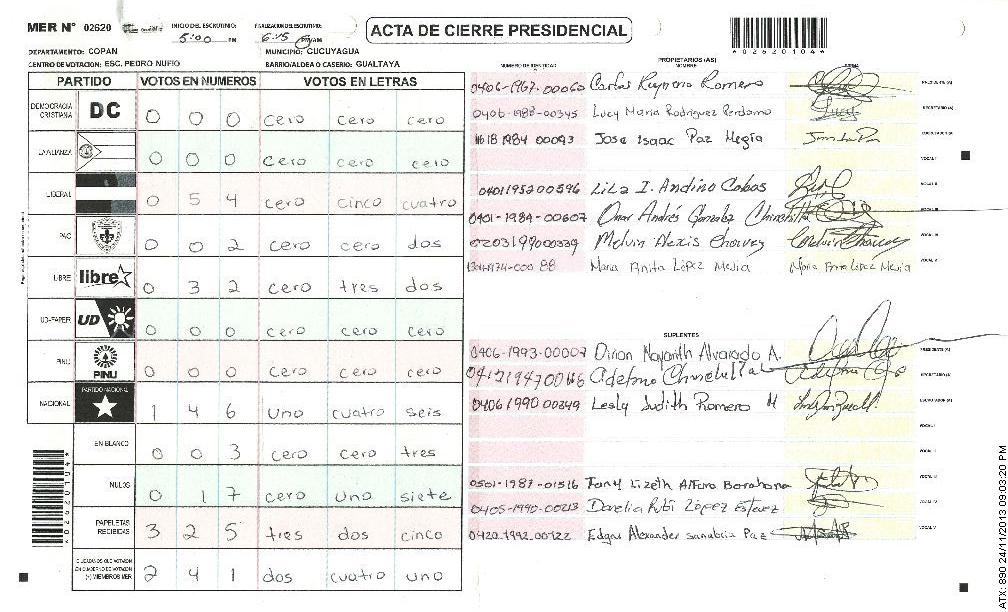 MER Nº 02620
INICIO DEL ESCRUTINIO: 5:00 PM
FINALIZACION DEL ESCRUTINIO: 6:15 PM/AM
ACTA DE CIERRE PRESIDENCIAL
*02620104*
DEPARTAMENTO: COPAN
MUNICIPIO: CUCUYAGUA
CENTRO DE VOTACION: ESC. PEDRO NUFIO
BARRIO/ALDEA O CASERIO: GUALTAYA
PARTIDO VOTOS EN NUMEROS VOTOS EN LETRAS
DEMOCRACIA CRISTIANA DC 0 0 0 cero cero cero
LA ALIANZA 0 0 0 cero cero cero
LIBERAL 0 5 4 cero cinco cuatro
PAC 0 0 2 cero cero dos
LIBRE libre 0 3 2 cero tres dos
UD-FAPER UD 0 0 0 cero cero cero
PINU PINU 0 0 0 cero cero cero
NACIONAL PARTIDO NACIONAL 1 4 6 uno cuatro seis
EN BLANCO 0 0 3 cero cero tres
NULOS 0 1 7 cero uno siete
PAPELETAS RECIBIDAS 3 2 5 tres dos cinco
CIUDADANOS QUE VOTARON EN CUADERNO DE VOTACION (+) MIEMBROS MER 2 4 1 dos cuatro uno
PROPIETARIOS (AS)
NUMERO DE IDENTIDAD NOMBRE FIRMA
0406-1967-00060 Carlos Romero PRESIDENTE (A)
0406-1988-00345 Lucy Maria Rodriguez Perdomo Lucy SECRETARIO (A)
1618 1984 00093 Jose Isaac Paz Megia ESCRUTADOR (A)
VOCAL I
0401195200596 Lila I. Andino Cobos VOCAL II
0401-1984-00607 Omar Andrés Gonzalez Chinchilla VOCAL III
0203199000339 Melvin Alexis Chavez VOCAL IV
Maria Anita López Mejia Maria Anita López Mejia VOCAL V
SUPLENTES
0406-1993-00007 Alvarado A. PRESIDENTE (A)
SECRETARIO (A)
0406 1990 00349 Lesly Judith Romero M ESCRUTADOR (A)
VOCAL I
VOCAL II
0501-1987-01516 Fany Lizeth Alfaro Barahona VOCAL III
0405-1990-00213 Darelia Rubi López Estevez VOCAL IV
0420-1992-00122 Edgar Alexander Sanabria Paz VOCAL V
ATX: 890 24/11/2013 09:03:20 PM